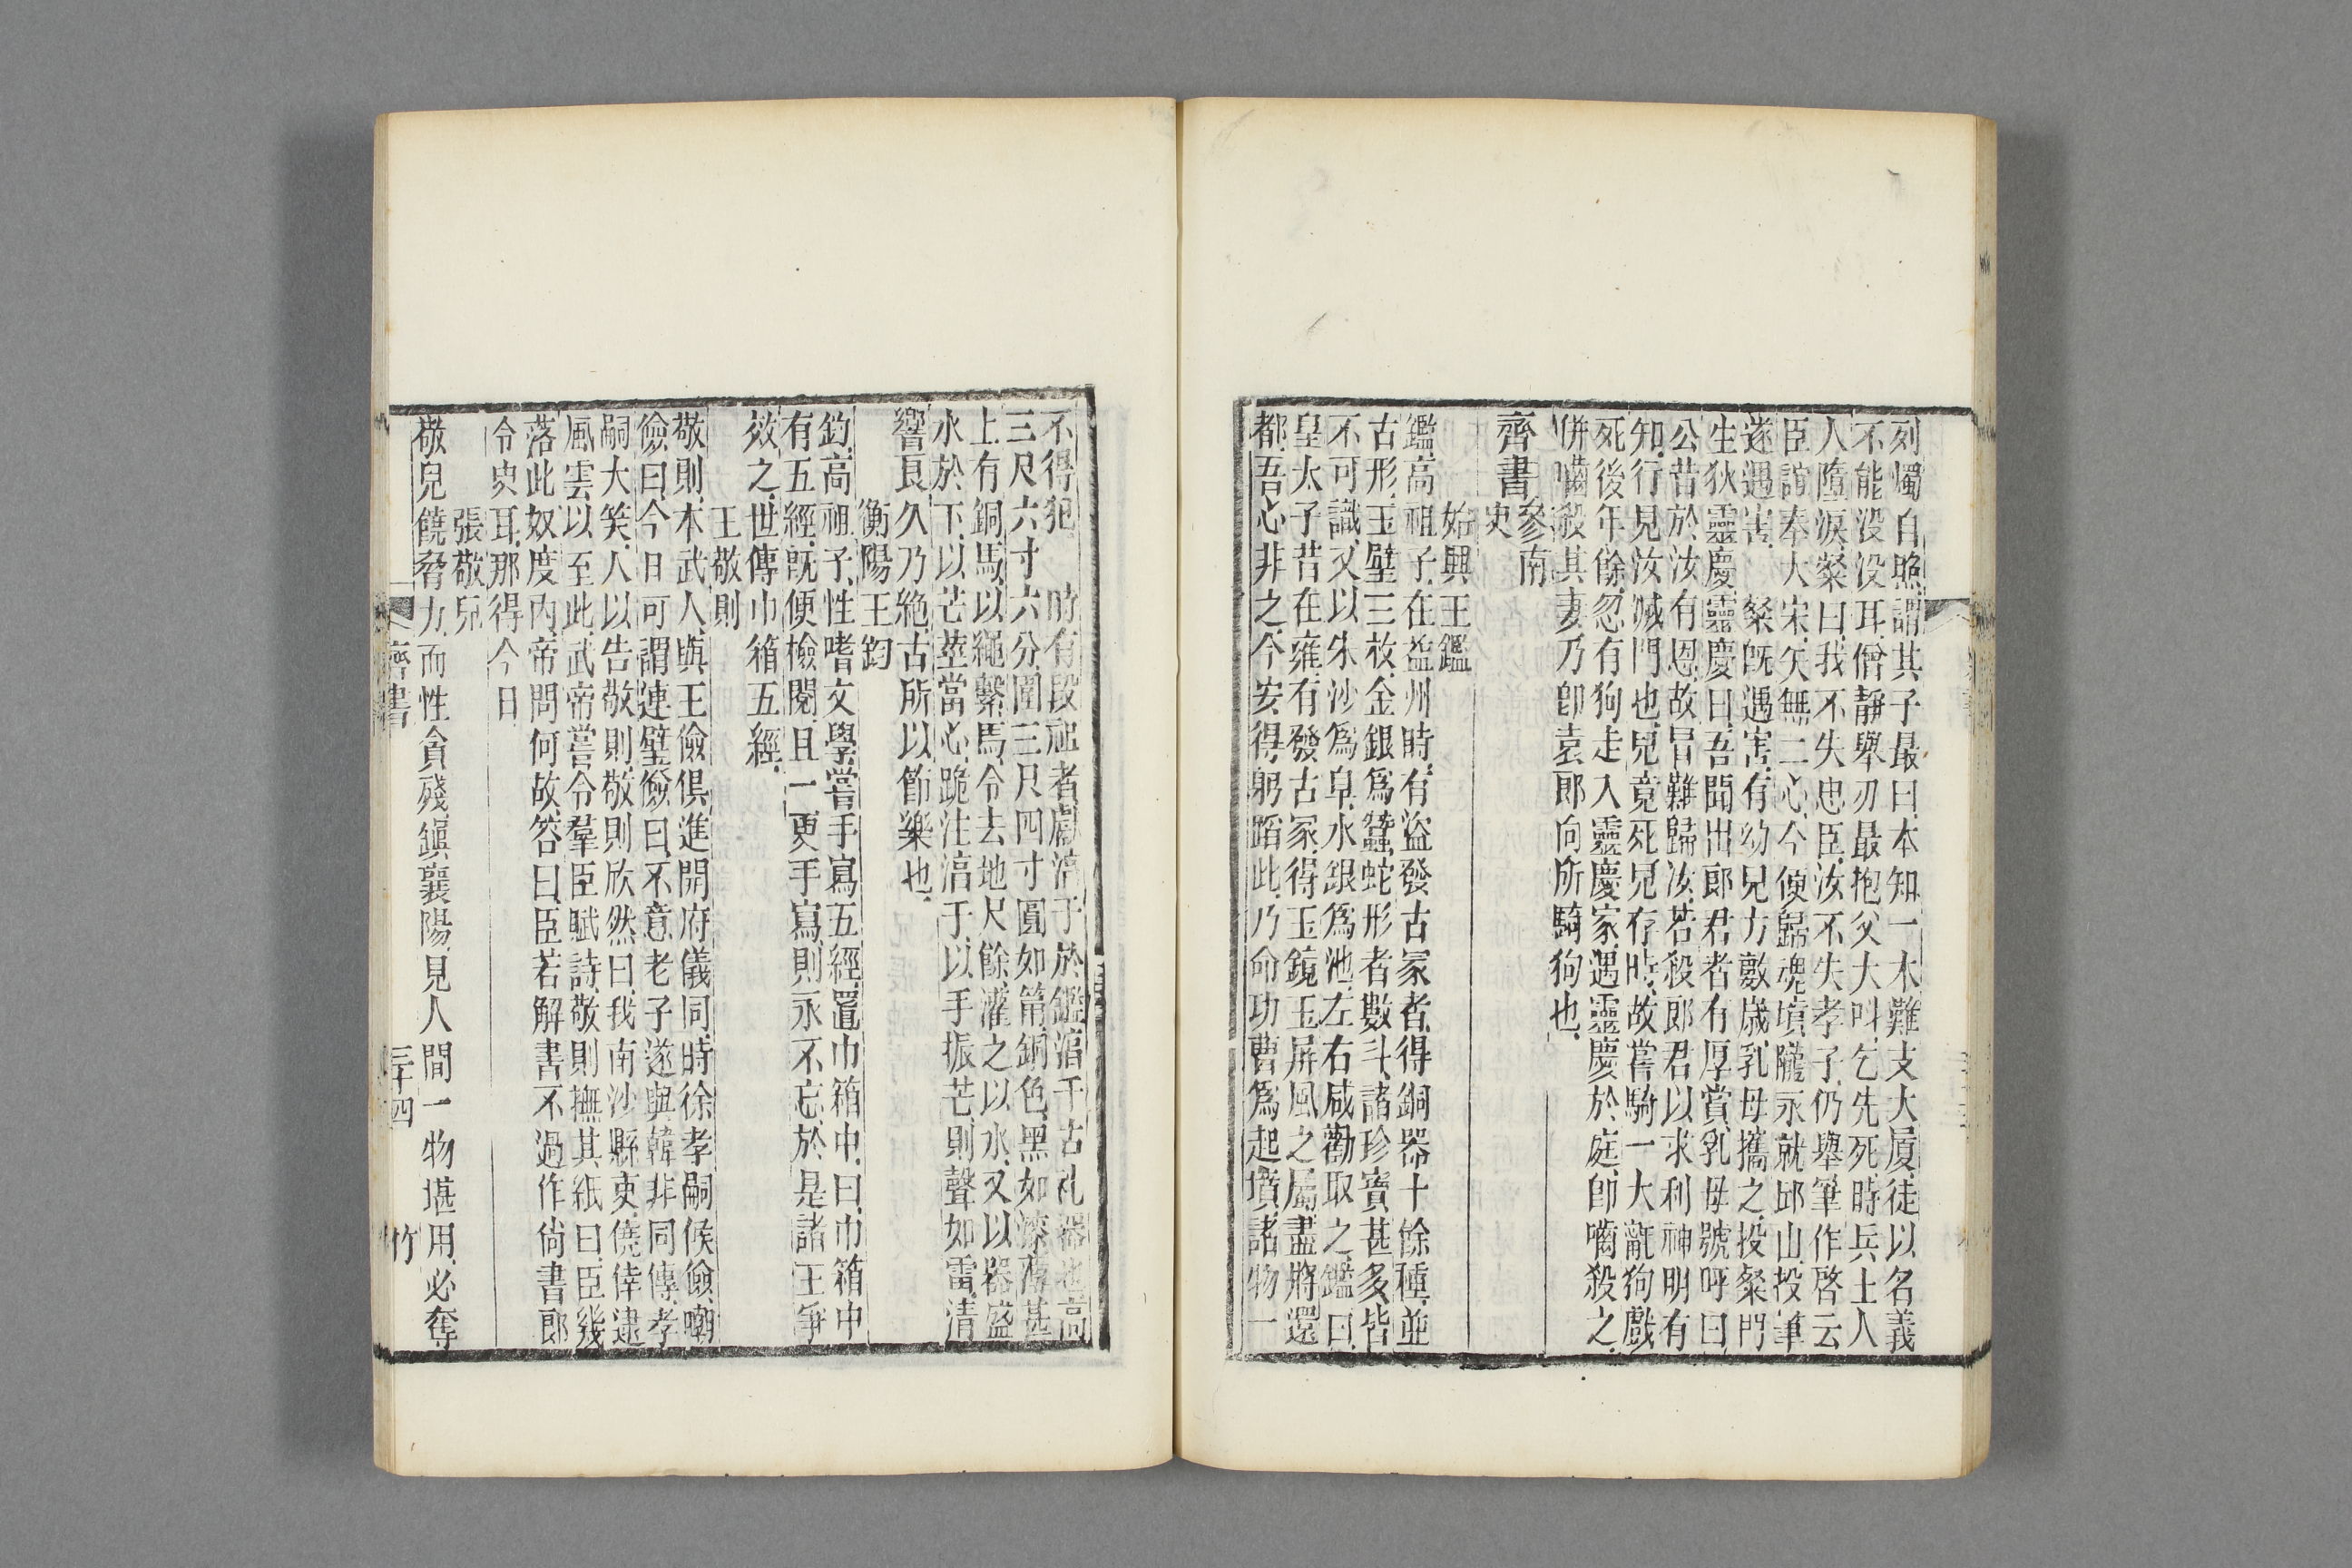 列燭自照謂其子最曰本知一木難支大厦徒以名義
不能没没耳僧靜舉刃最抱父大叫乞先死時兵士人
人隨淚粲曰我不失忠臣汝不失孝子仍舉筆作啓云
臣誼奉大宋矢無二心今便歸魂墳隴永就邱山投筆
遂遇害 粲旣遇害有幼兒方數歲乳母攜之投粲門
生狄靈慶靈慶曰吾聞出郎君者有厚賞乳母號呼曰
公昔於汝有恩故冒難歸汝若殺郎君以求利神明有
知行見汝滅門也兒竟死兒存時故嘗騎一大㲦狗戲
死後年餘忽有狗走入靈慶家遇靈慶於庭卽嚙殺之
併嚙殺其妻乃卽袁郎向所騎狗也
齊書 參南史
始興王鑑
鑑高祖子在益州時有盜發古冢者得銅器十餘種並
古形玉璧三枚金銀爲蠶蛇形者數斗諸珍寶甚多皆
不可識又以朱沙爲阜水銀爲池左右咸勸取之鑑曰
皇太子昔在雍有發古冢得玉鏡玉屏風之屬盡將還
都吾心非之今安得躬蹈此乃命功曹爲起墳諸物一
不得犯 時有段祖者獻淯于於鑑淯于古礼器也高
三尺六寸六分圍三尺四寸圓如筩銅色黑如漆薄甚
上有銅馬以繩繫馬令去地尺餘灌之以水又以器盛
水於下以芒莖當心跪注淯于以手振芒則聲如雷清
響良久乃絶古所以節樂也
衡陽王鈞
鈞高祖子性嗜文學嘗手寫五經置巾箱中曰巾箱中
有五經旣便檢閱且一更手寫則永不忘於是諸王爭
效之世傳巾箱五經
王敬則
敬則本武人與王儉俱進開府儀同時徐孝嗣候儉嘲
儉曰今日可謂連璧儉曰不意老子遂與韓非同傳孝
嗣大笑人以告敬則敬則欣然曰我南沙縣吏僥倖逮
風雲以至此武帝嘗令羣臣賦詩敬則撫其紙曰臣幾
落此奴度內帝問何故答曰臣若解書不過作尚書郎
令史耳那得今日
張敬兒
敬兒饒脅力而性貪殘鎭襄陽見人間一物堪用必奪
齊書 三十四 竹